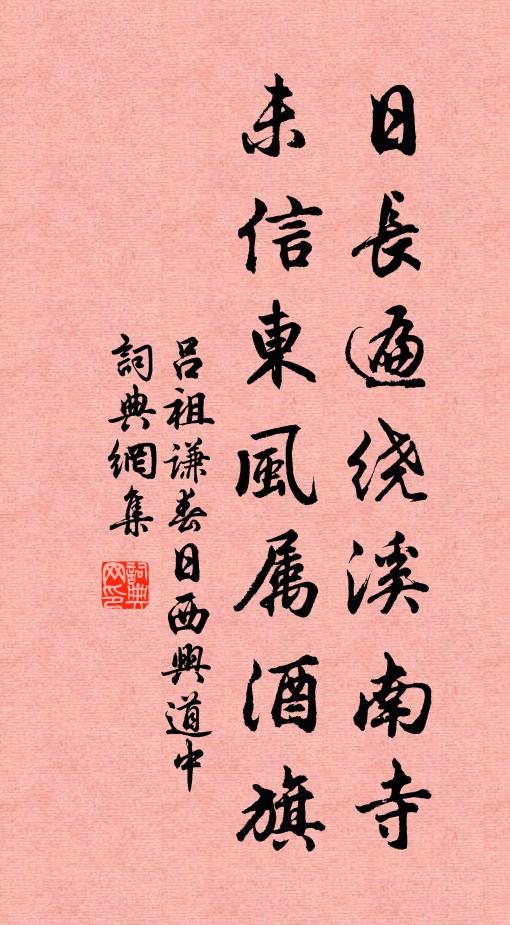 日長遍绕溪南寺
未信東風属酒旗
吕祖謙春日西興道中
詞典網集
詞典
网印